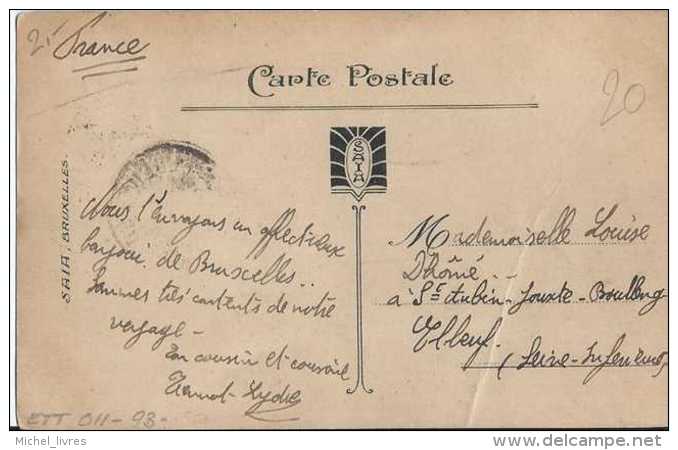 France
Carte Postale
20
SAIA
SAIA, BRUXELLES.
Nous t'envoyons un affectueux
bonjour de Bruxelles..
Sommes très contents de notre
voyage –
Ton cousin et cousine
Lydie
Mademoiselle Louise
Dhômé..
à St Aubin-Jouxte-Boulleng
Elbeuf.
(Seine-Inférieure)
ETT 011-93-
Michel_livres
www.delcampe.net